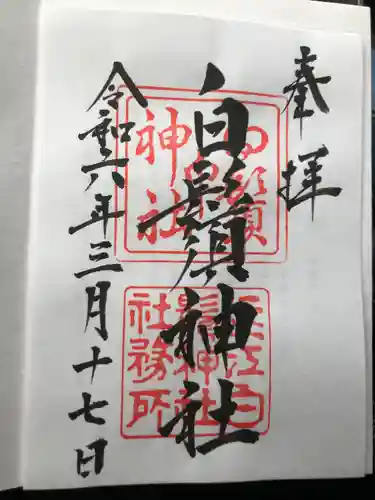 奉拝
白鬚神社
令和六年三月十七日
白鬚
神社
近江白
鬚神社
社務所